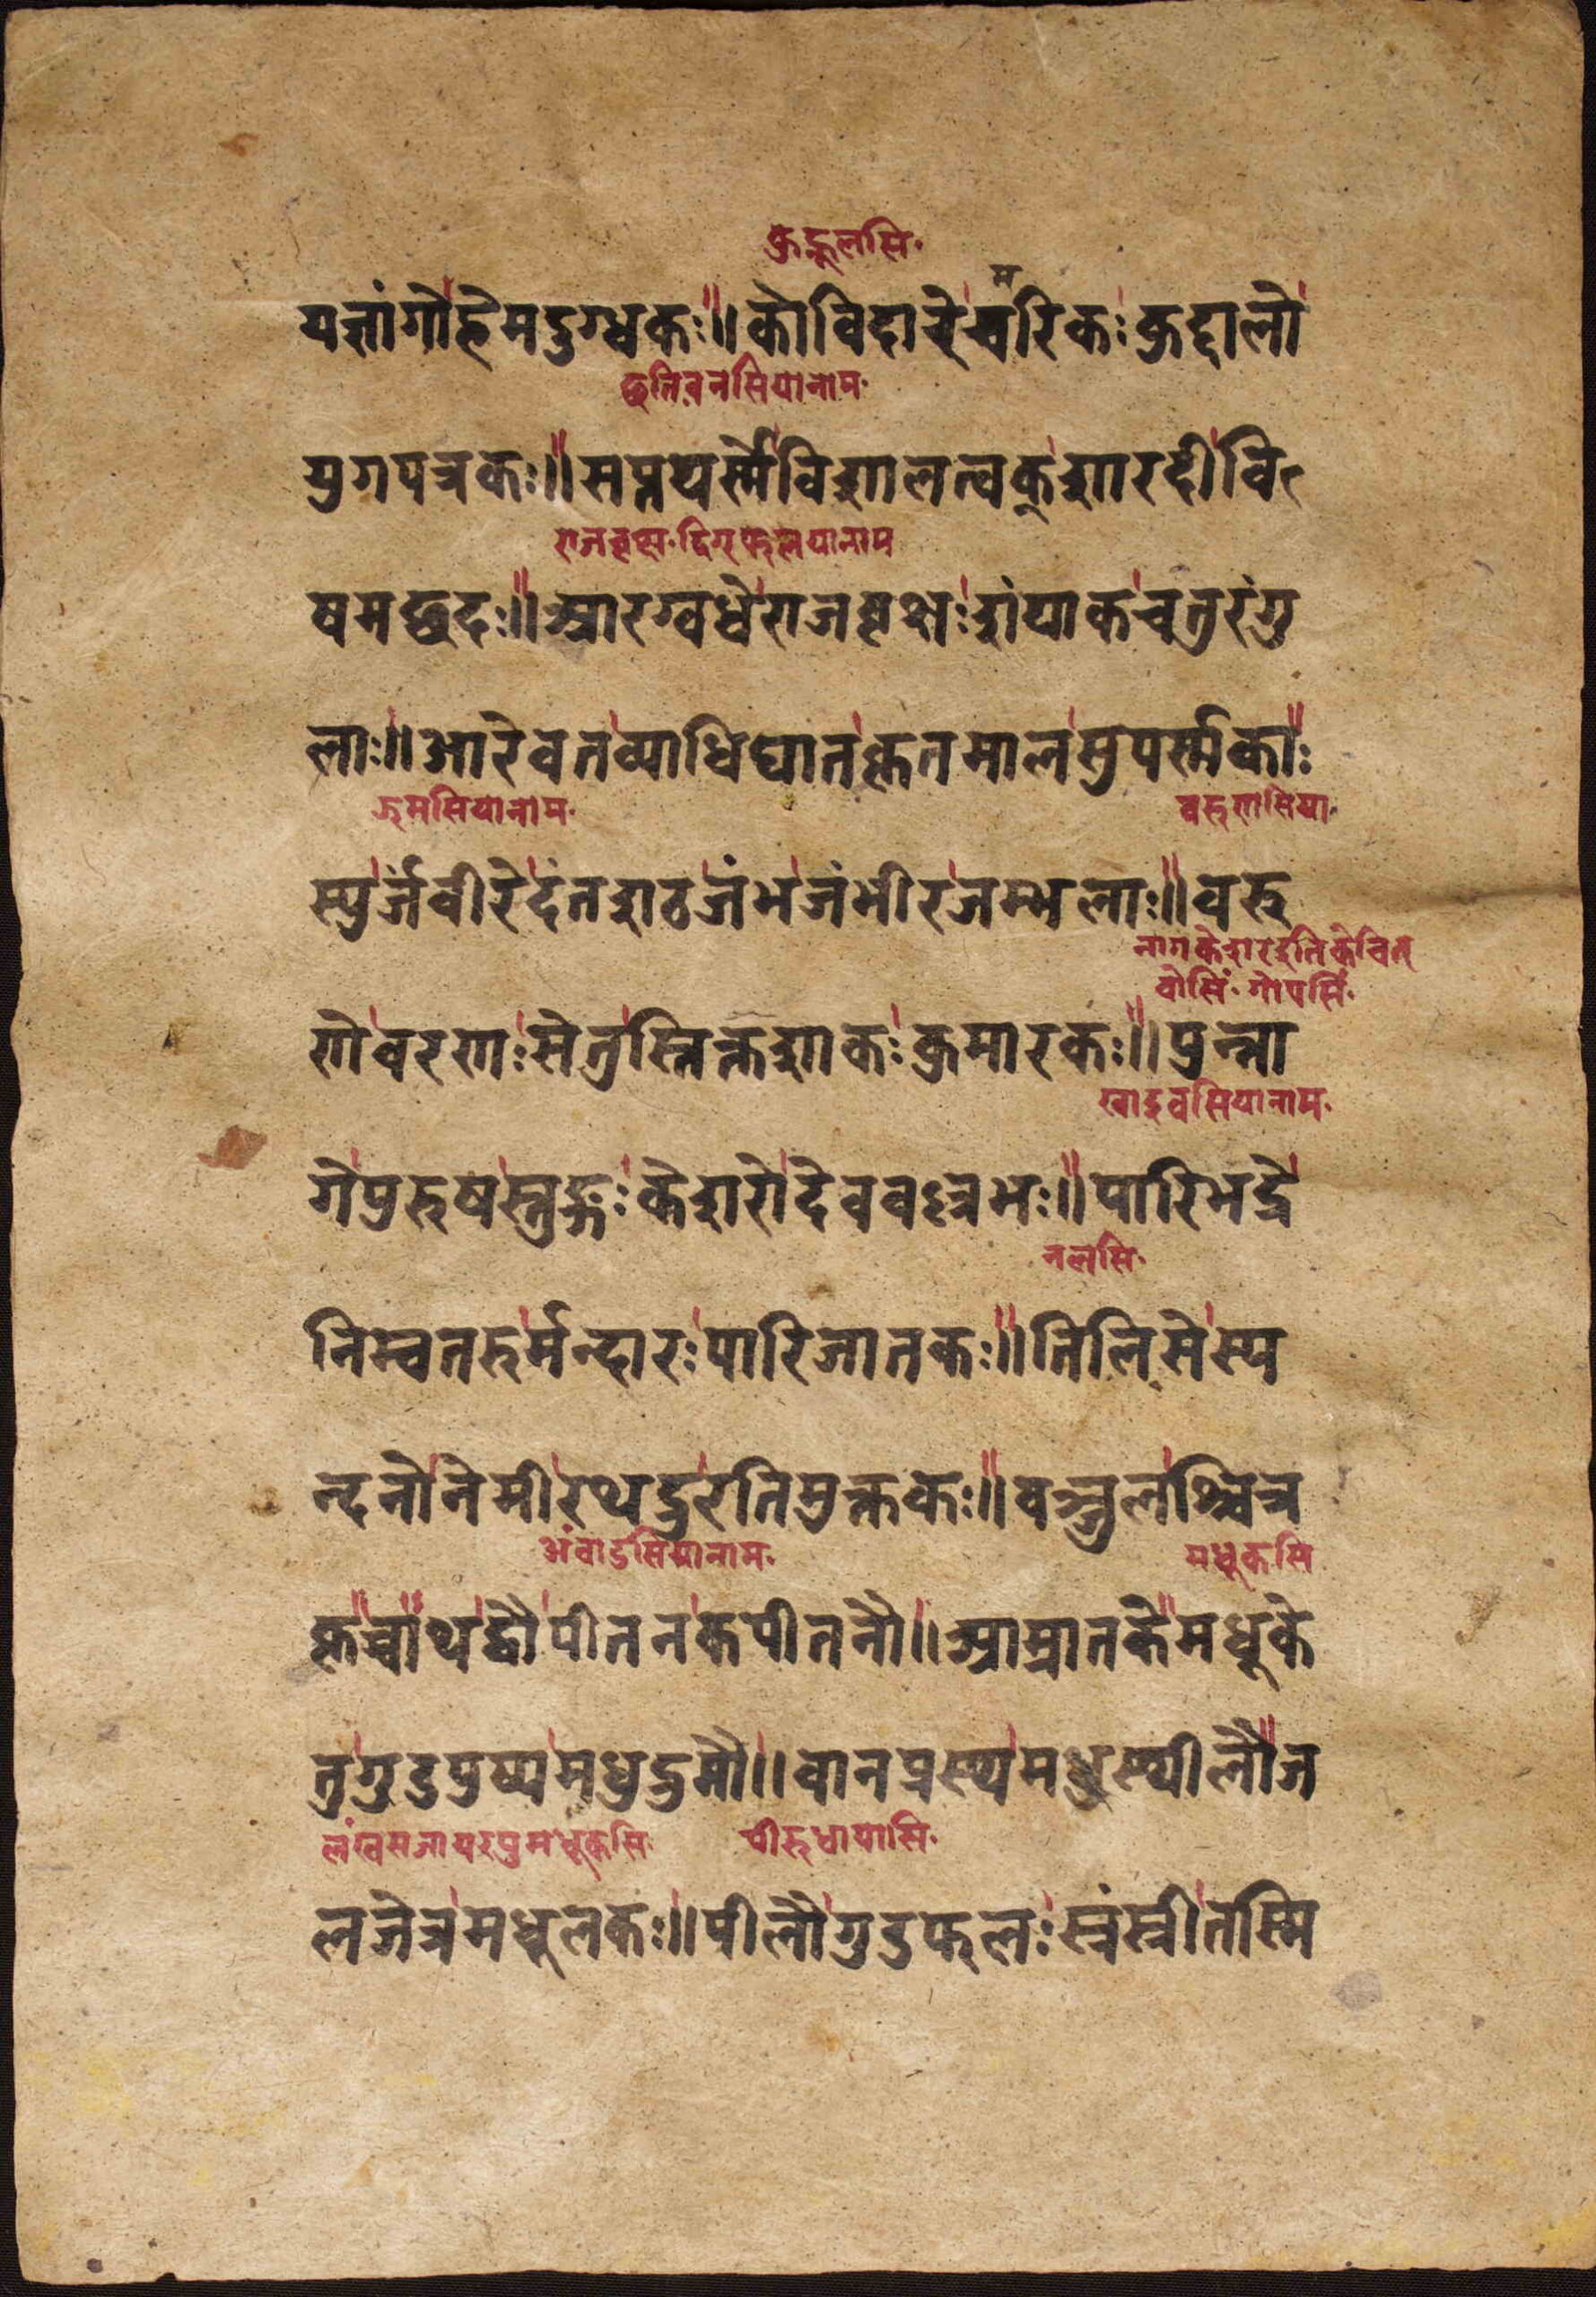 कुद्दूलसि
यज्ञांगोहेमदुग्धकः॥कोविदारेचमरिकःकुद्दालो
छतिवनसियानाम
युगपत्रकः॥सप्तपर्स्मेविशालत्वक्शारदीवि
राजवृक्ष द्विगफलयानाम
षमछदः॥आरग्वधेराजवृक्षःशंपाकचतुरंगु
लाः॥आरेवतव्याधिघातकृतमालसुपर्स्मकाः
झमसियानाम वरुणसिया
स्युर्जंवीरेदंतशठजंभजंभीरजम्भलाः॥वरु
नागकेशरइतिकेचित्
वोसिं गोपसिं
णेवरणःसेतुस्तिक्तशाकःकुमारकः॥पुन्ना
खाडवसियानाम
गेपुरुषस्तुङ्गःकेशरोदेववःत्रभः॥पारिभद्रे
नलसि
निम्बतरुर्मन्दारःपारिजातकः॥तिलिसेस्य
न्दनोनेमीरथद्रुरतिमुक्तकः॥वञ्जुलश्चित्र
अंवाडसियानाम मधूकसि
कृच्चाथद्वौपीतनकपीतनौ॥आम्रातकेमधूके
तुगुडपुष्पमधुद्रुमौ॥वानप्रस्थमधुस्थीलौज
लंखसजायरपुमधूकसि पीरुधायासि
लजेत्रमधूलकः॥पीलौगुडफलःस्त्रंस्त्रीतस्मि